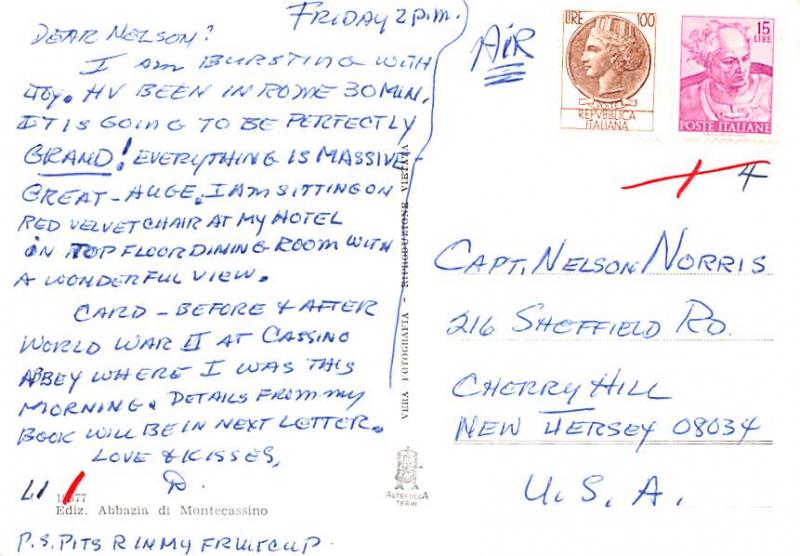 FRIDAY 2 P.M.
DEAR NELSON:
I AM BURSTING WITH
JOY. HV BEEN IN ROME 30 MIN.
IT IS GOING TO BE PERFECTLY
GRAND! EVERYTHING IS MASSIVE-
GREAT-HUGE. I AM SITTING ON
RED VELVET CHAIR AT MY HOTEL
IN TOP FLOOR DINING ROOM WITH
A WONDERFUL VIEW.
CARD - BEFORE & AFTER
WORLD WAR II AT CASSINO
ABBEY WHERE I WAS THIS
MORNING. DETAILS FROM MY
BOOK WILL BE IN NEXT LETTER.
LOVE & KISSES,
D.
Ediz. Abbazia di Montecassino
P.S. PITS R IN MY FRUITCUP.
VERA FOTOGRAFIA - RIPRODUZIONE VIETATA
ALTEROCCA
TERNI
AIR
LIRE 100
REPVBBLICA
ITALIANA
15
LIRE
POSTE ITALIANE
4
CAPT. NELSON NORRIS
216 SHEFFIELD RD.
CHERRY HILL
NEW JERSEY 08034
U.S.A.